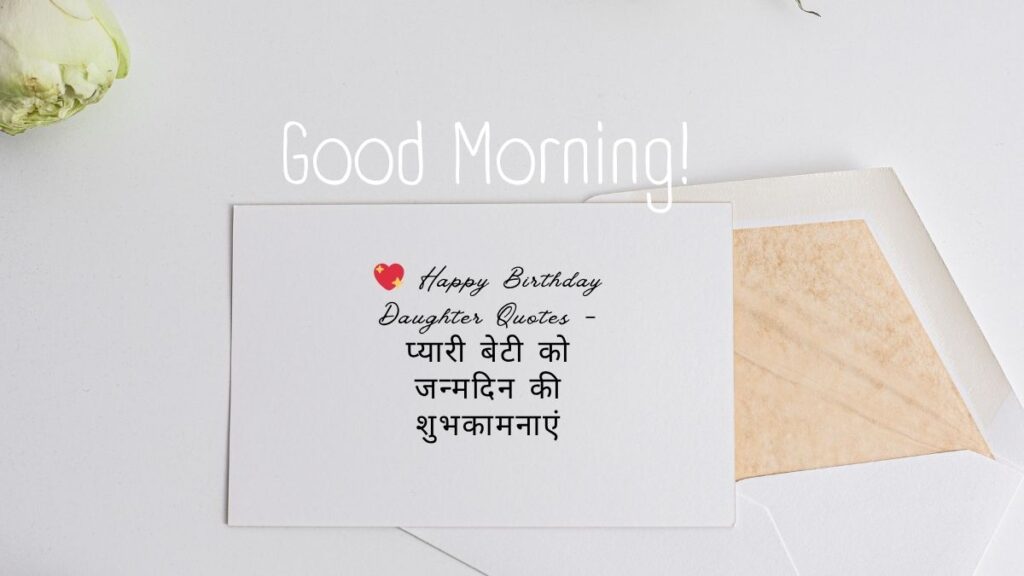 Good Morning!
💖 Happy Birthday
Daughter Quotes -
प्यारी बेटी को
जन्मदिन की
शुभकामनाएं